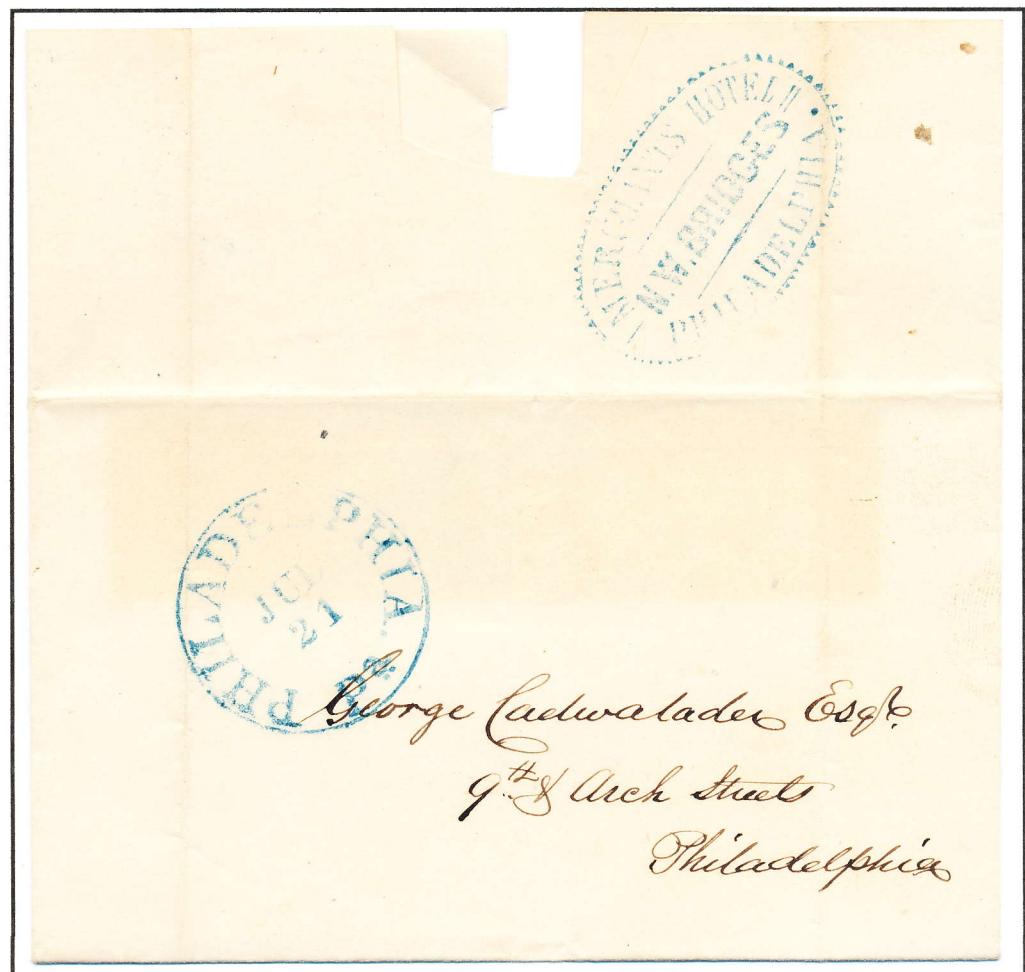 MERCHANTS HOTEL
N.W. BRIDGES
PHILADELPHIA
PHILADELPHIA.
JUL
21
George Cadwalader Esqre.
9th & Arch Streets
Philadelphia